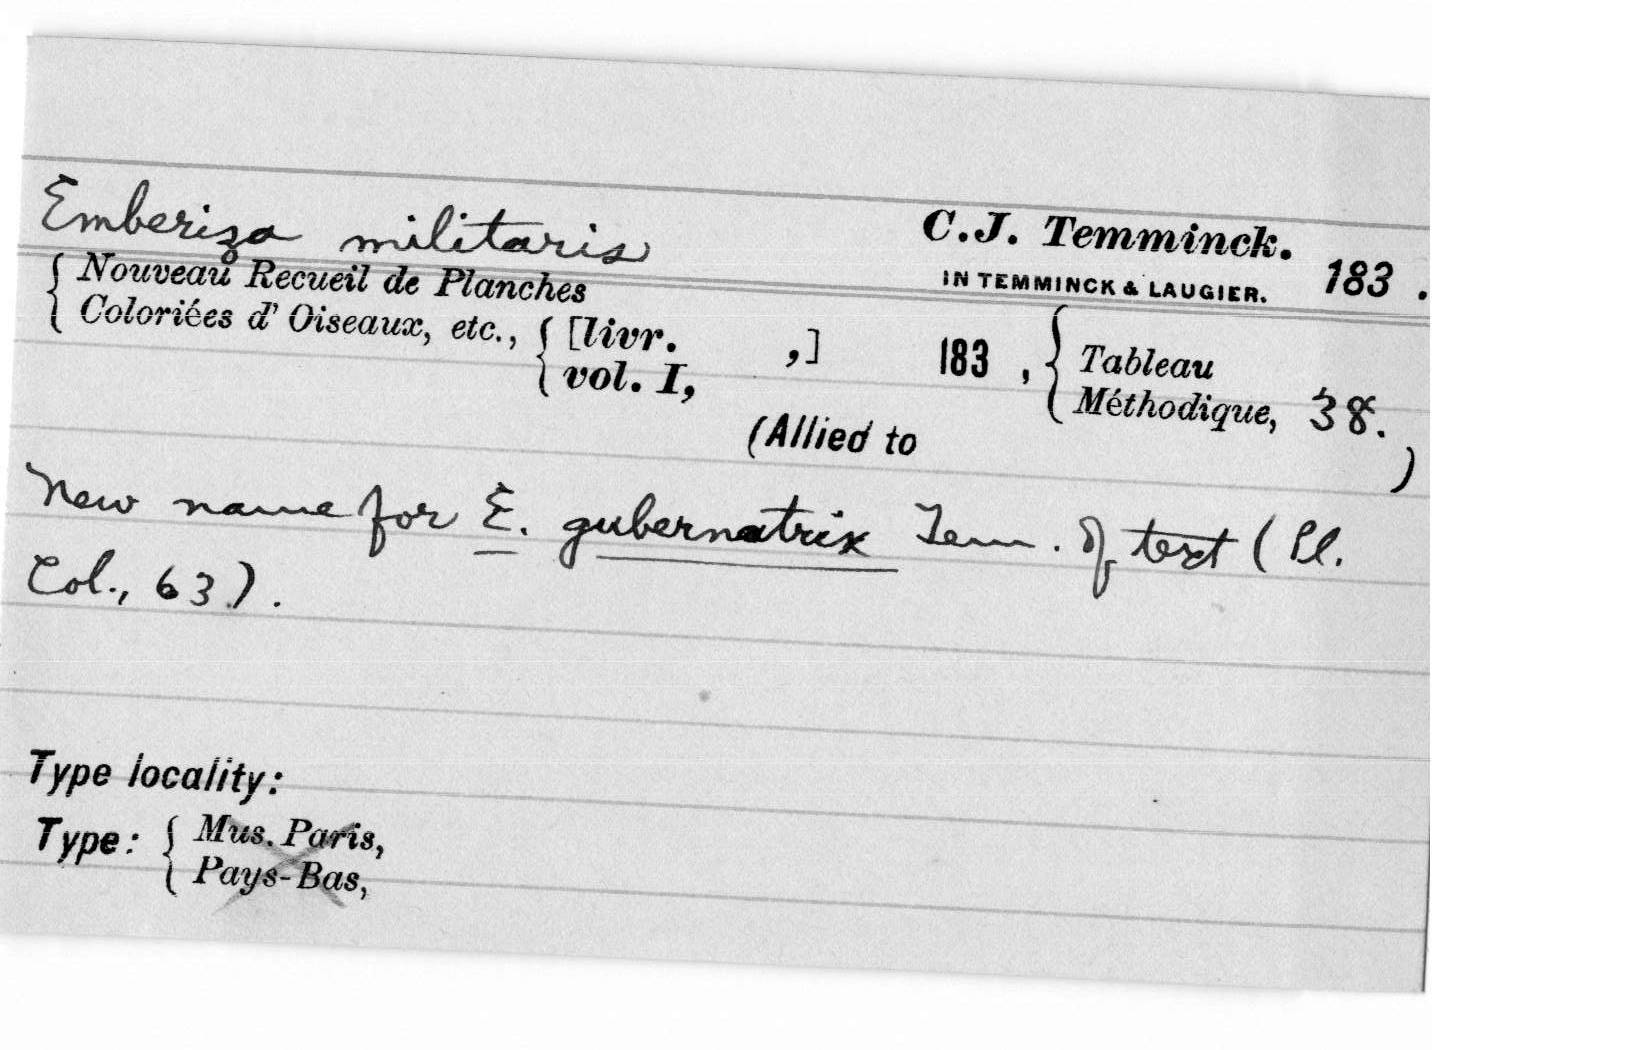 Emberiza militaris C.J. Temminck.
IN TEMMINCK & LAUGIER. 183 .
{ Nouveau Recueil de Planches
Coloriées d' Oiseaux, etc., { [livr. ,] 183 , { Tableau
vol. I, Méthodique, 38.
(Allied to )
New name for E. gubernatrix Tem. of text (Pl.
Col., 63).
Type locality:
Type: { Mus. Paris,
Pays-Bas,